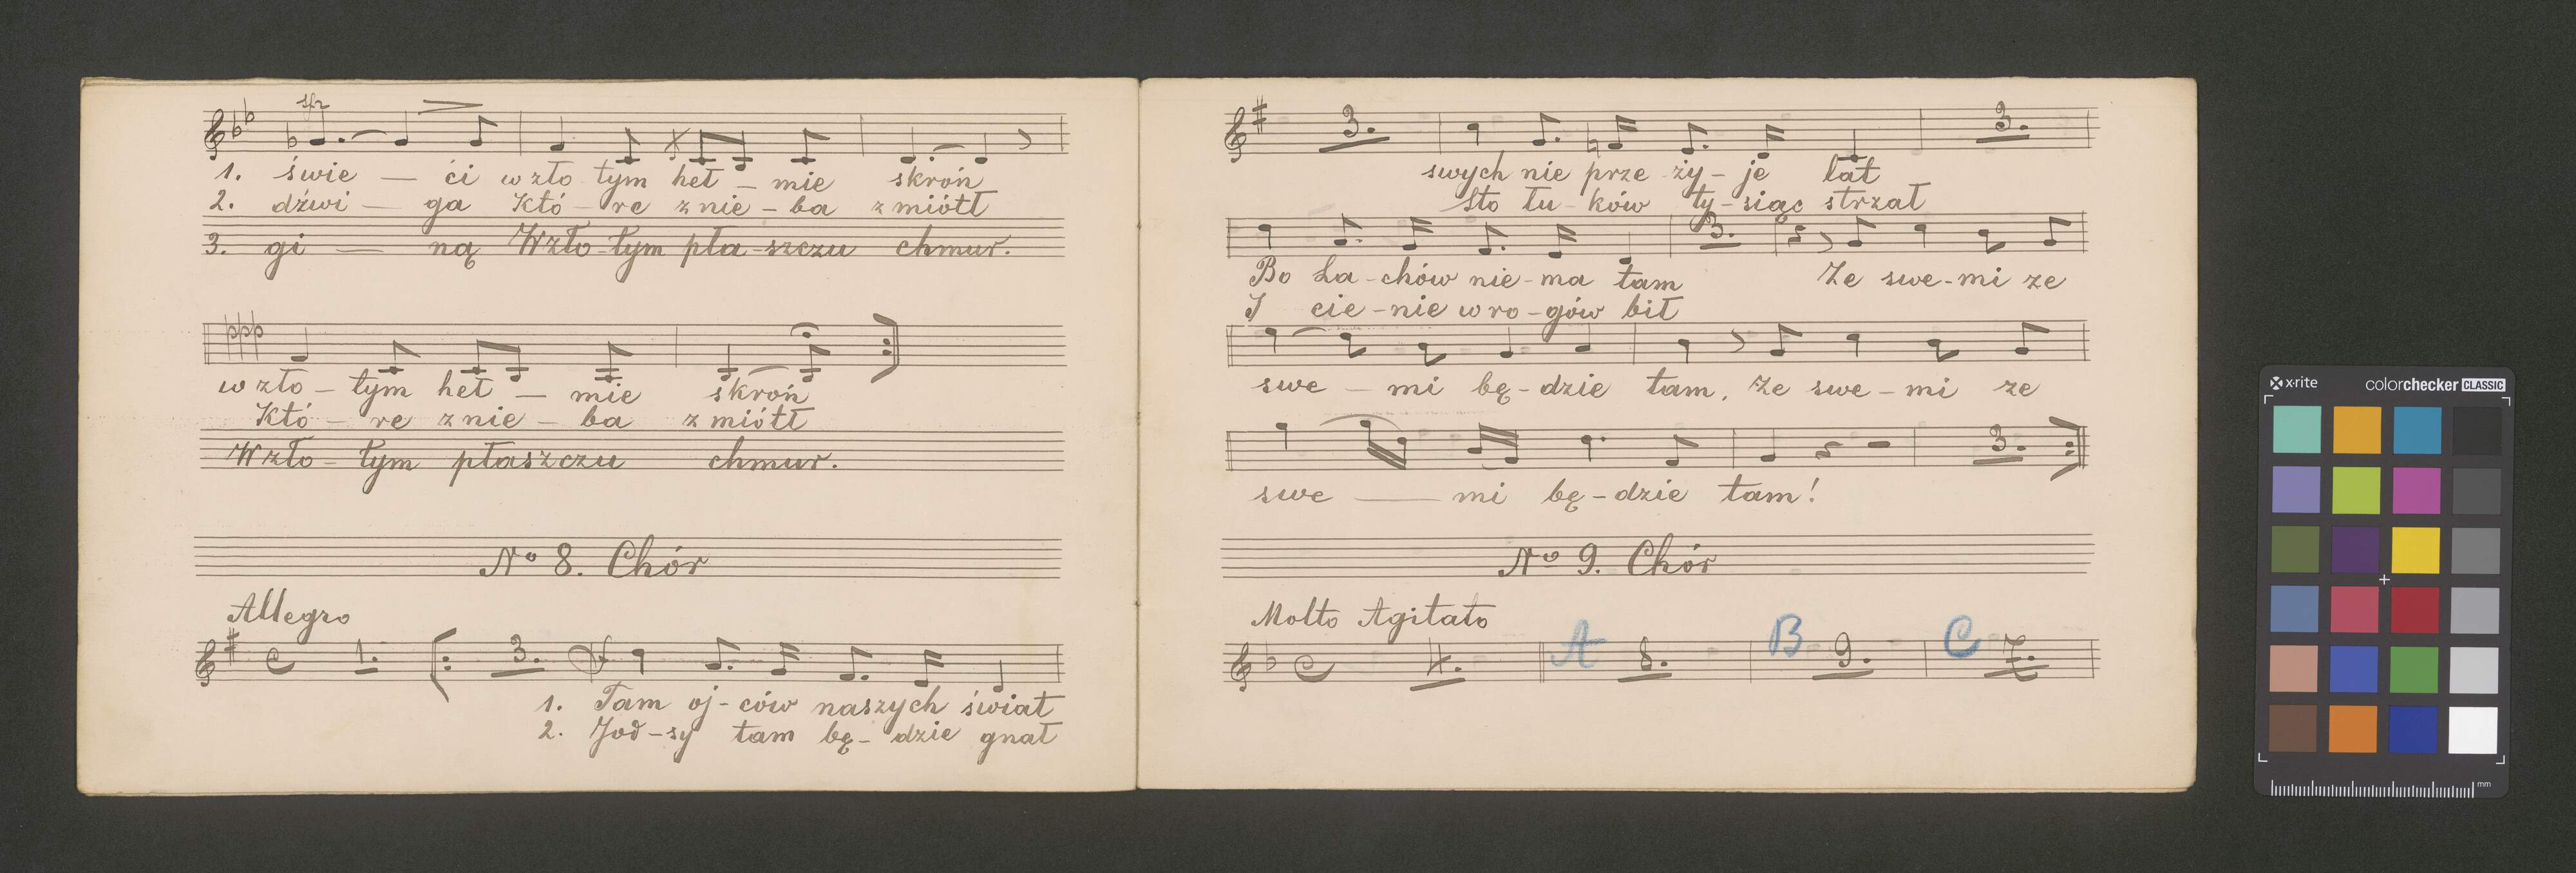 sfz
1. świe — ći w zło tym heł — mie skroń
2. dźwi — ga Któ — re z nie — ba z miótł
3. gi — ną W zło — tym pła — szczu chmur.
w zło — tym heł — mie skroń
Któ — re z nie — ba z miótł
W zło — tym płaszczu chmur.
No 8. Chór
Allegro
1. 3. f
1. Tam oj — ców naszych świat
2. Jod — sy tam bę — dzie gnał
3. 3.
swych nie prze ży — je lat
sto łu — ków ty — siąc strzał
3.
Bo La — chów nie — ma tam Ze swe — mi ze
I cie — nie wro — gów bił
swe — mi bę — dzie tam, Ze swe — mi ze
3.
swe — mi bę — dzie tam!
No 9. Chór
Molto Agitato
4. A 8. B 9. C 7.
x-rite colorchecker CLASSIC
mm